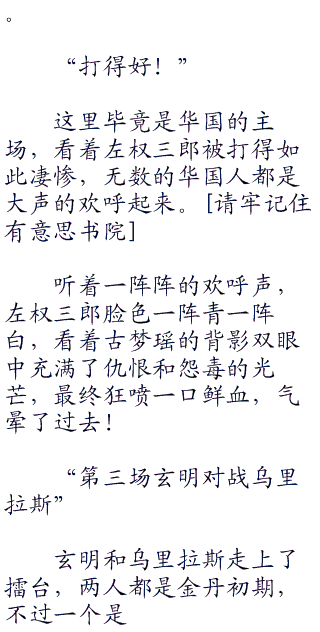 。
“打得好！”
这里毕竟是华国的主
场，看着左权三郎被打得如
此凄惨，无数的华国人都是
大声的欢呼起来。[请牢记住
有意思书院]
听着一阵阵的欢呼声，
左权三郎脸色一阵青一阵
白，看着古梦瑶的背影双眼
中充满了仇恨和怨毒的光
芒，最终狂喷一口鲜血，气
晕了过去！
“第三场玄明对战乌里
拉斯”
玄明和乌里拉斯走上了
擂台，两人都是金丹初期，
不过一个是